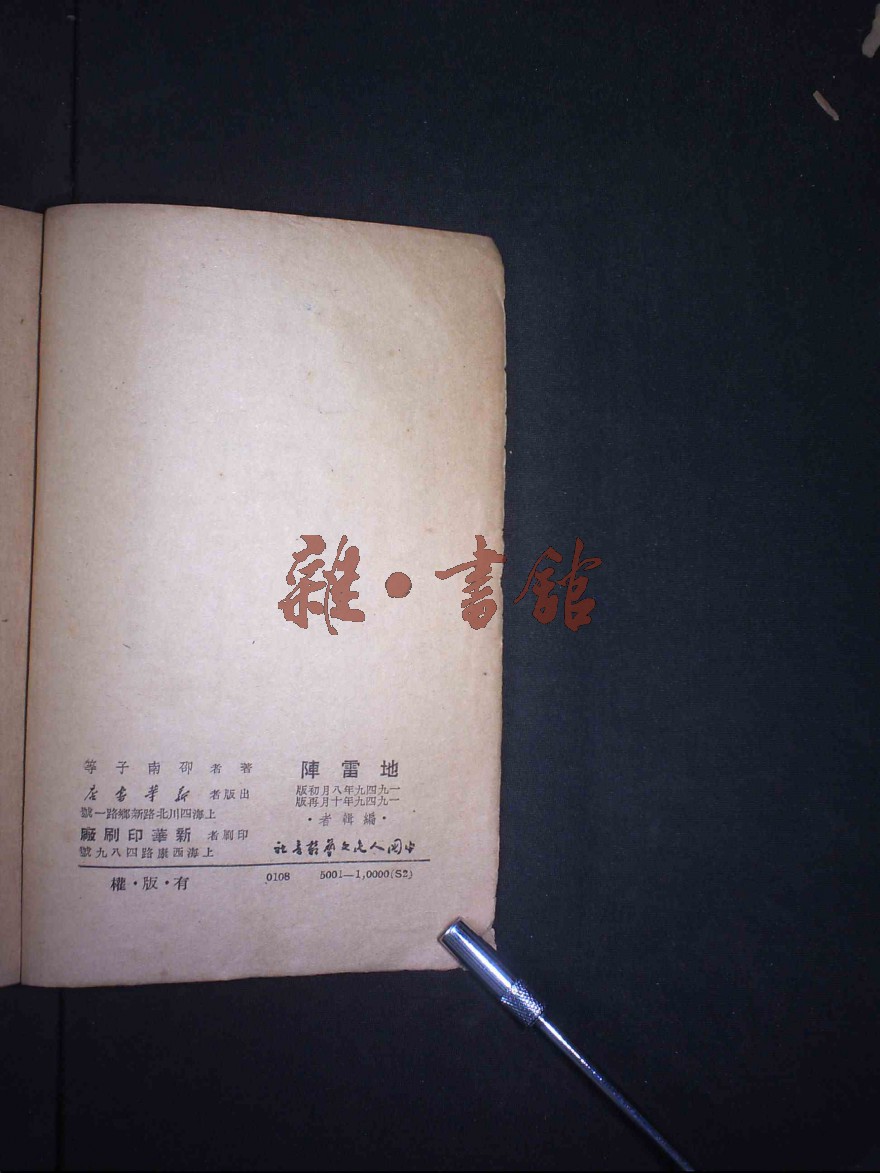 雜·書館
地雷陣
一九四九年八月初版
一九四九年十月再版
·編輯者·
中國人民文藝叢書社
著者 邵子南等
出版者 新華書店
上海四川北路新鄉路一號
印刷者 新華印刷廠
上海西康路四八九號
0108 5001—1,0000(S2)
有·版·權